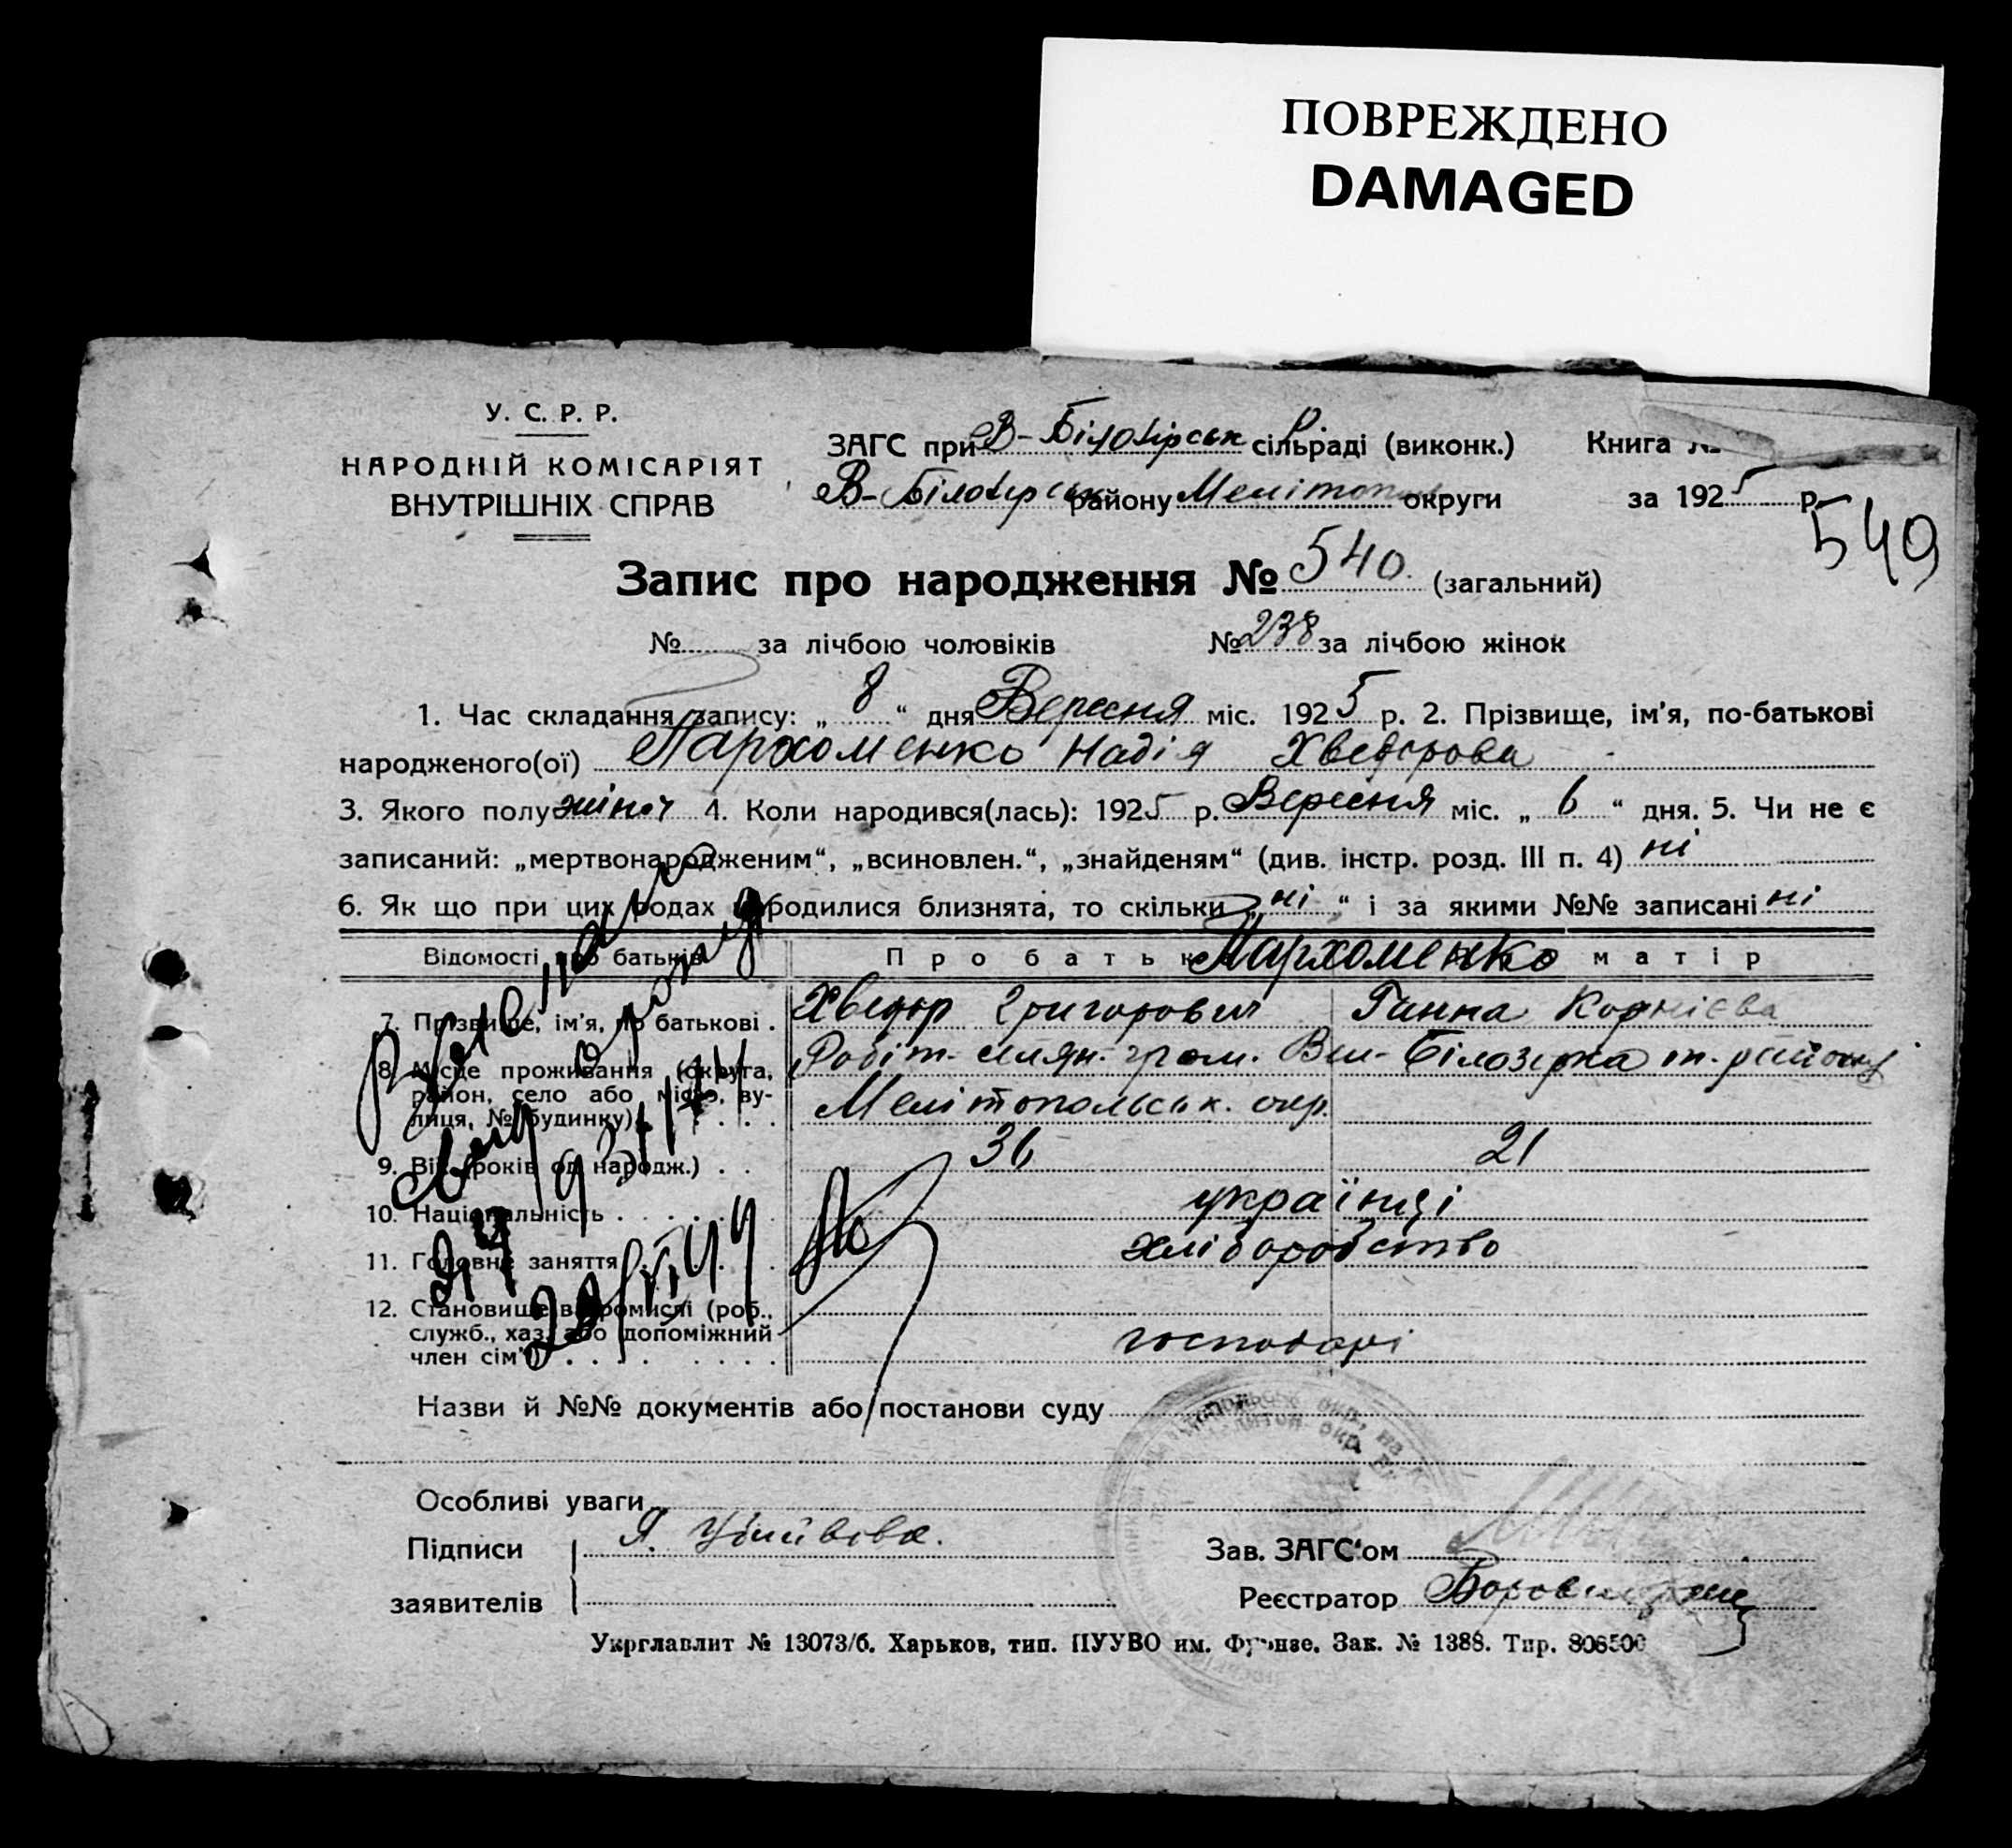 ПОВРЕЖДЕНО
DAMAGED
У. С. Р. Р.
НАРОДНІЙ КОМІСАРІЯТ
ВНУТРІШНІХ СПРАВ
ЗАГС при В-Білозірськ сільраді (виконк.) Книга №
В-Білозірськ району Мелітоп округи за 1925 р.
549
Запис про народження № 540. (загальний)
№ за лічбою чоловіків № 238 за лічбою жінок
1. Час складання запису: „ 8 “ дня Вересня міс. 1925 р. 2. Прізвище, ім’я, по-батькові
народженого(ої) Пархоменко Надія Хведорова
3. Якого полу жіноч 4. Коли народився(лась): 1925 р. Вересня міс. „ 6 “ дня. 5. Чи не є
записаний: „мертвонародженим“, „всиновлен.“, „знайденям“ (див. інстр. розд. III п. 4) ні
6. Як що при цих родах народилися близнята, то скільки „ ні “ і за якими №№ записані ні
Відомості про батьків Про батька Пархоменко матір
7. Прізвище, ім’я, по батькові . Хведір Григорович Ганна Корнієва
8. Місце проживання (округа, район, село або місто, вулиця, № будинку) Робіт. селян. гром. Вел-Білозірка т. району
Мелітопольськ. окр.
9. Вік (років од народж.) . . 36 21
10. Національність українці
11. Головне заняття хліборобство
12. Становище в промислі (роб.,
служб., хаз. або допоміжний
член сім’ї) господарі
Назви й №№ документів або постанови суду
Особливі уваги
Підписи Зав. ЗАГС‘ом
заявителів Реєстратор
Укрглавлит № 13073/б. Харьков, тип. ПУУВО им. Фрунзе. Зак. № 1388. Тир. 806500